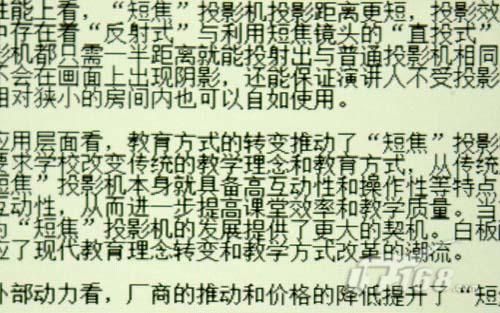 性能上看，“短焦”投影机投影距离更短，投影效
中存在着“反射式”与利用短焦镜头的“直投式”
影机都只需一半距离就能投射出与普通投影机相同
不会在画面上出现阴影，还能保证演讲人不受投影
相对狭小的房间内也可以自如使用。
应用层面看，教育方式的转变推动了“短焦”投影
要求学校改变传统的教学理念和教育方式，从传统
短焦”投影机本身就具备高互动性和操作性等特点
互动性，从而进一步提高课堂效率和教学质量。当
为“短焦”投影机的发展提供了更大的契机。白板
应了现代教育理念转变和教学方式改革的潮流。
外部动力看，厂商的推动和价格的降低提升了“短
IT168.com